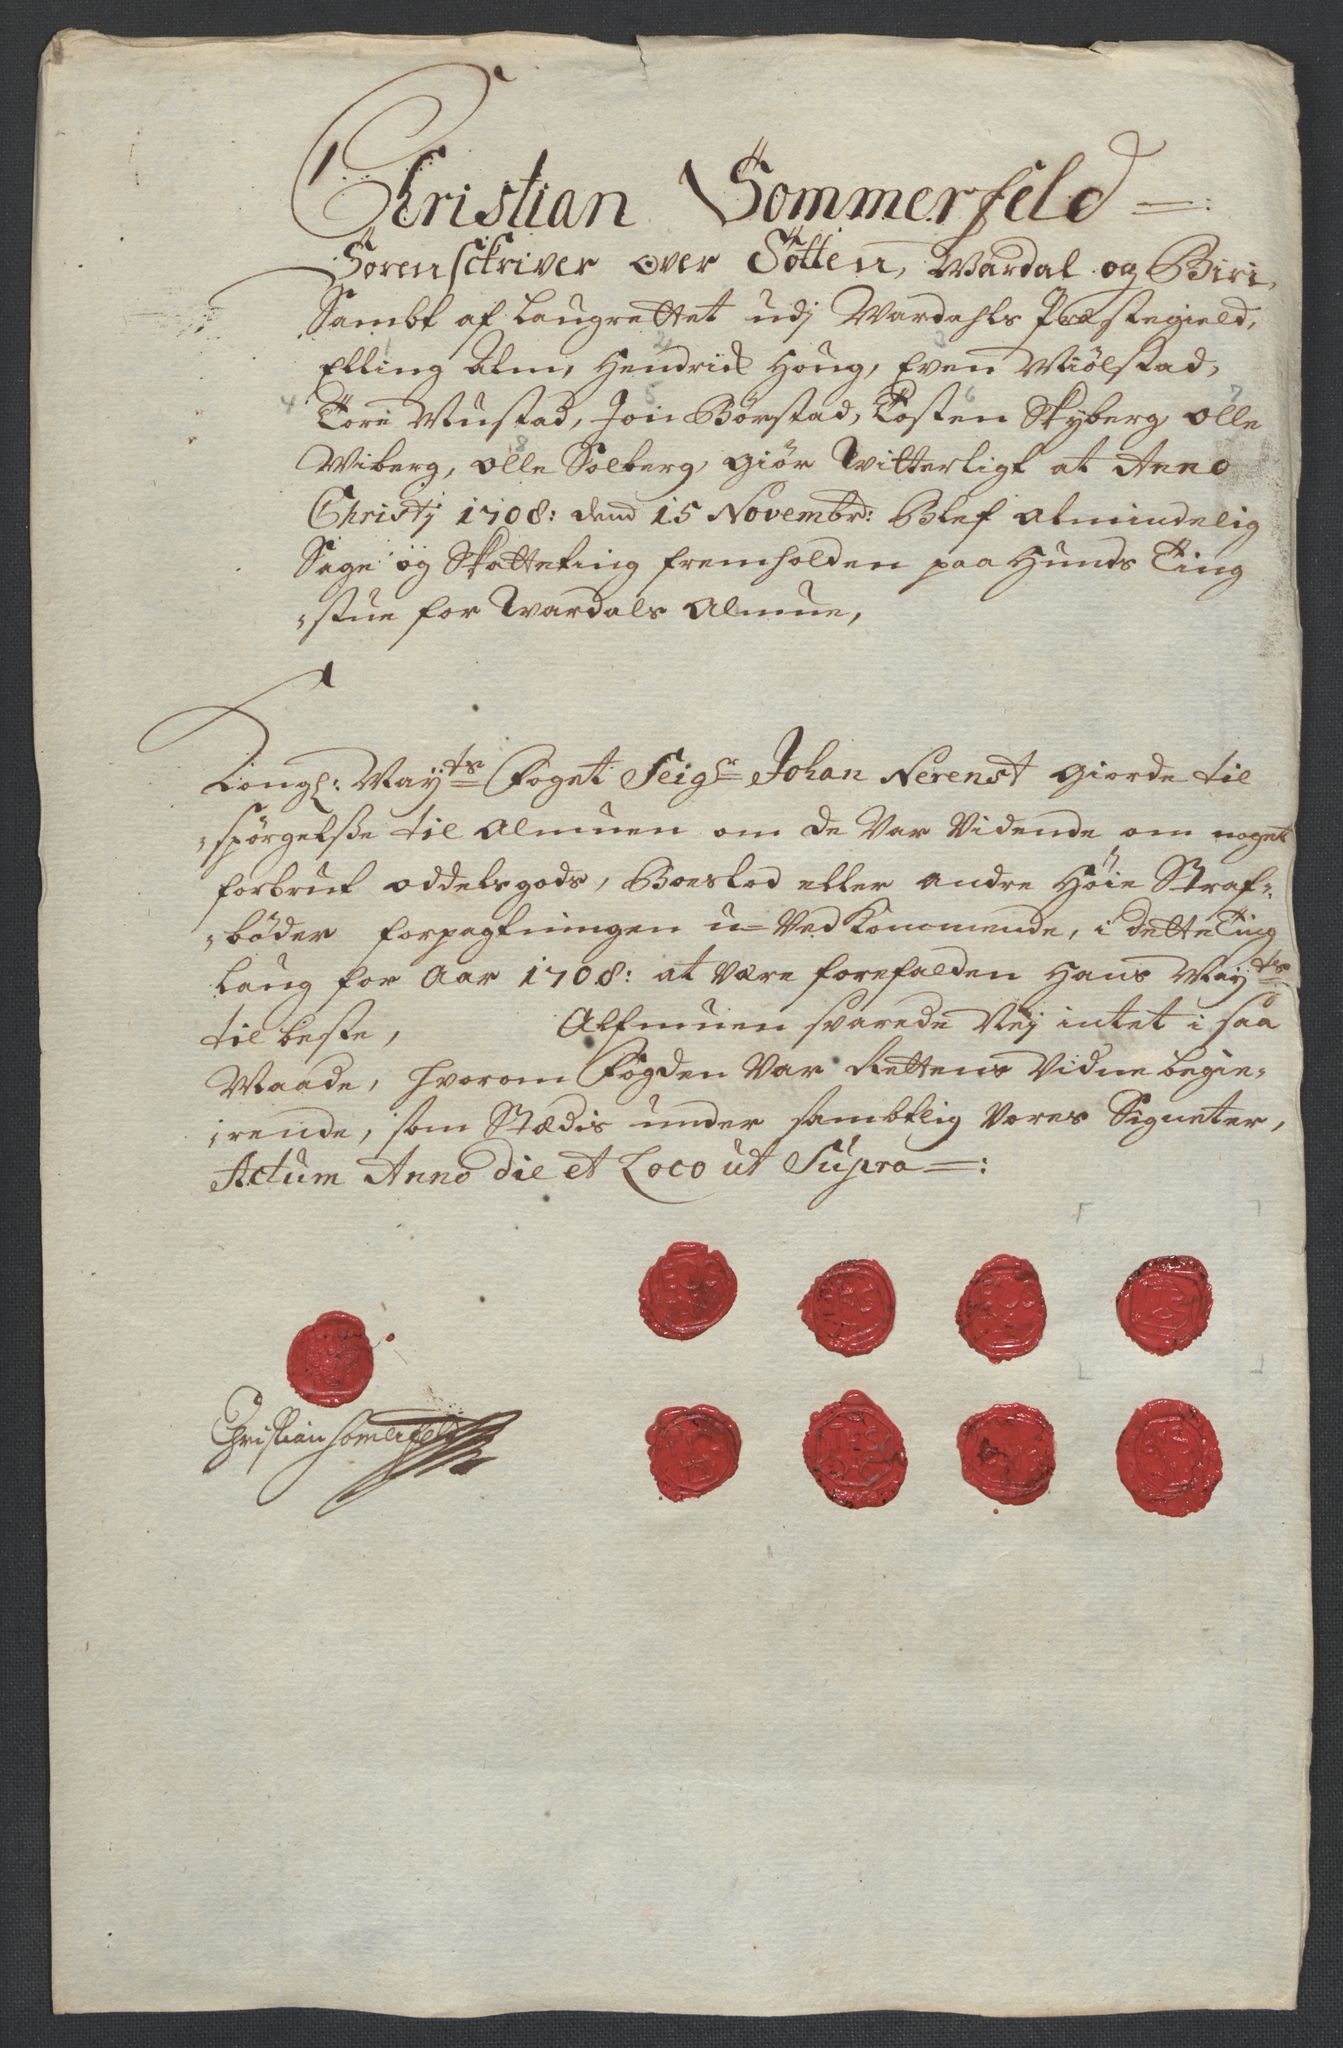 Christian Sommerfeld
Sorensckriver over Totten, Wardal og Biri,
Sambt af Laugrettet udj Wardahls Præstegield,
1 2 3
Elling Alm, Hendrick Houg, Even Miölstad,
4 5 6 7
Tore Mustad, Jon Börstad, Tosten Skyberg, olle
8
Wiberg, olle Solberg, Giör Witterligt at Anno
Christj 1708: dend 15 Novembr: Blef almindelig
Sage og Skatteting fremholden paa Hunds Ting
stue for Wardals Almue,
Kongl: Mayts Foget Seigr Johan Nerenst giorde til
spörgelsse til Almuen om de var vidende om noget
forbrut oddelsgods, Boeslod eller andre Höie Straf
böder forpagtningen u-vedkommende, i dette Ting
laug for Aar 1708: at være forefalden Hans Mayts
til beste, Alfmuen svarede Nej intet i saa
Maade, hvorom Fogden var Rettens Vidne begie
rende, som Stædis under sambtlig vores Signeter,
Actum Anno die et Loco ut Supra
Christian Somerfeld